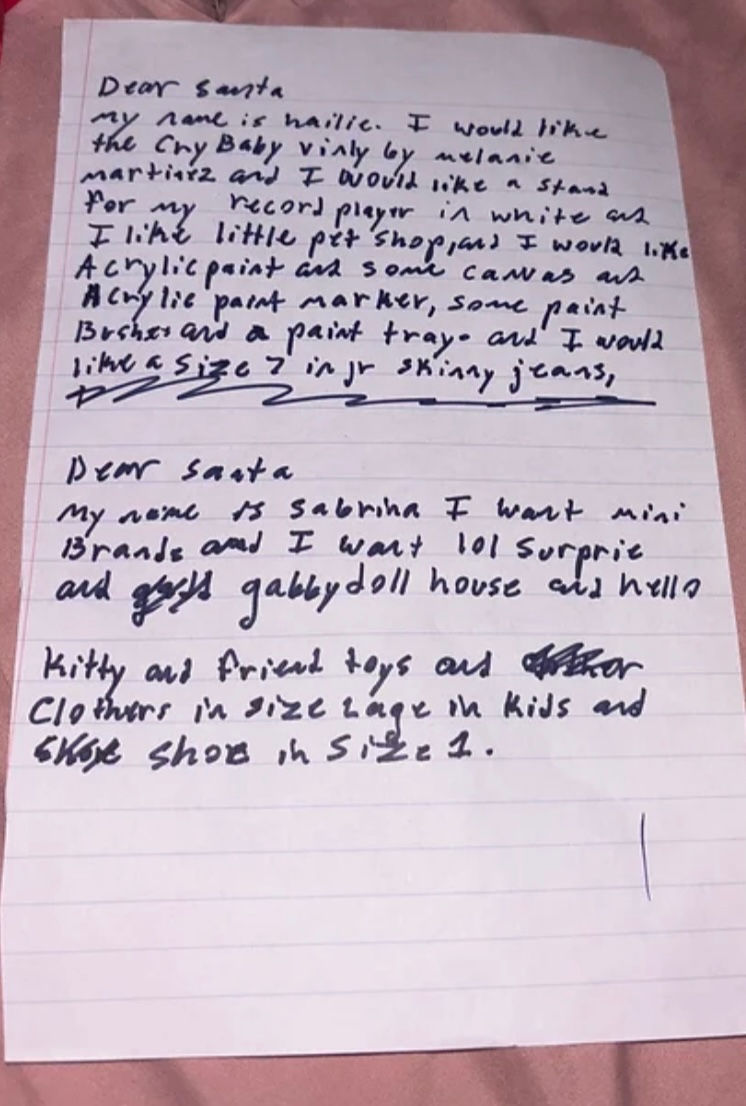 Dear santa
my name is hailie. I would like
the Cry Baby vinly by melanie
martinez and I would like a stand
for my record player in white and
I like little pet shop, and I would like
Acrylic paint and some canvas and
Acrylic paint marker, some paint
Brshes and a paint tray. and I would
like a size 7 in jr skinny jeans,
Dear santa
My name is Sabrina I want mini
Brands and I want lol Surprie
and gabby doll house and hello
Kitty and friend toys and
Clothers in size Lage in Kids and
shoe in size 1.